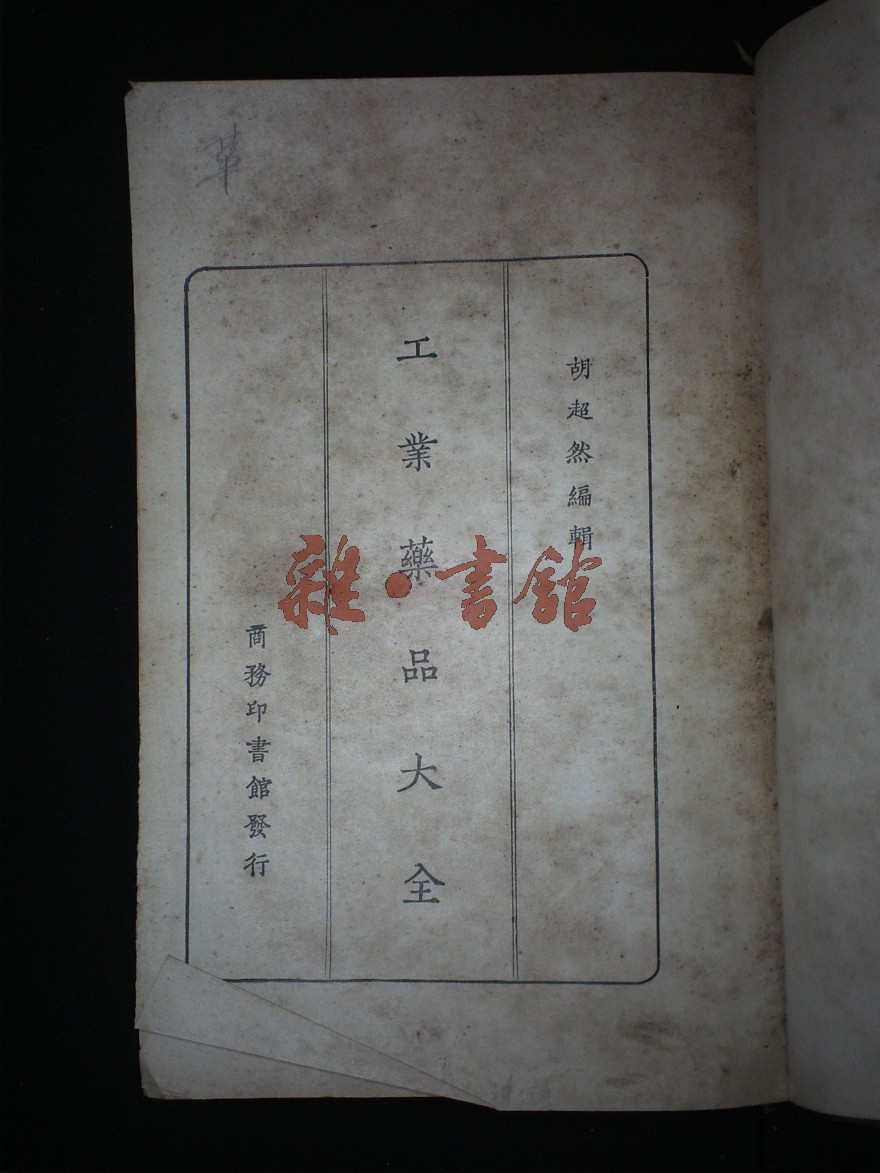 胡超然編輯
工業藥品大全
商務印書館發行
雜·書館